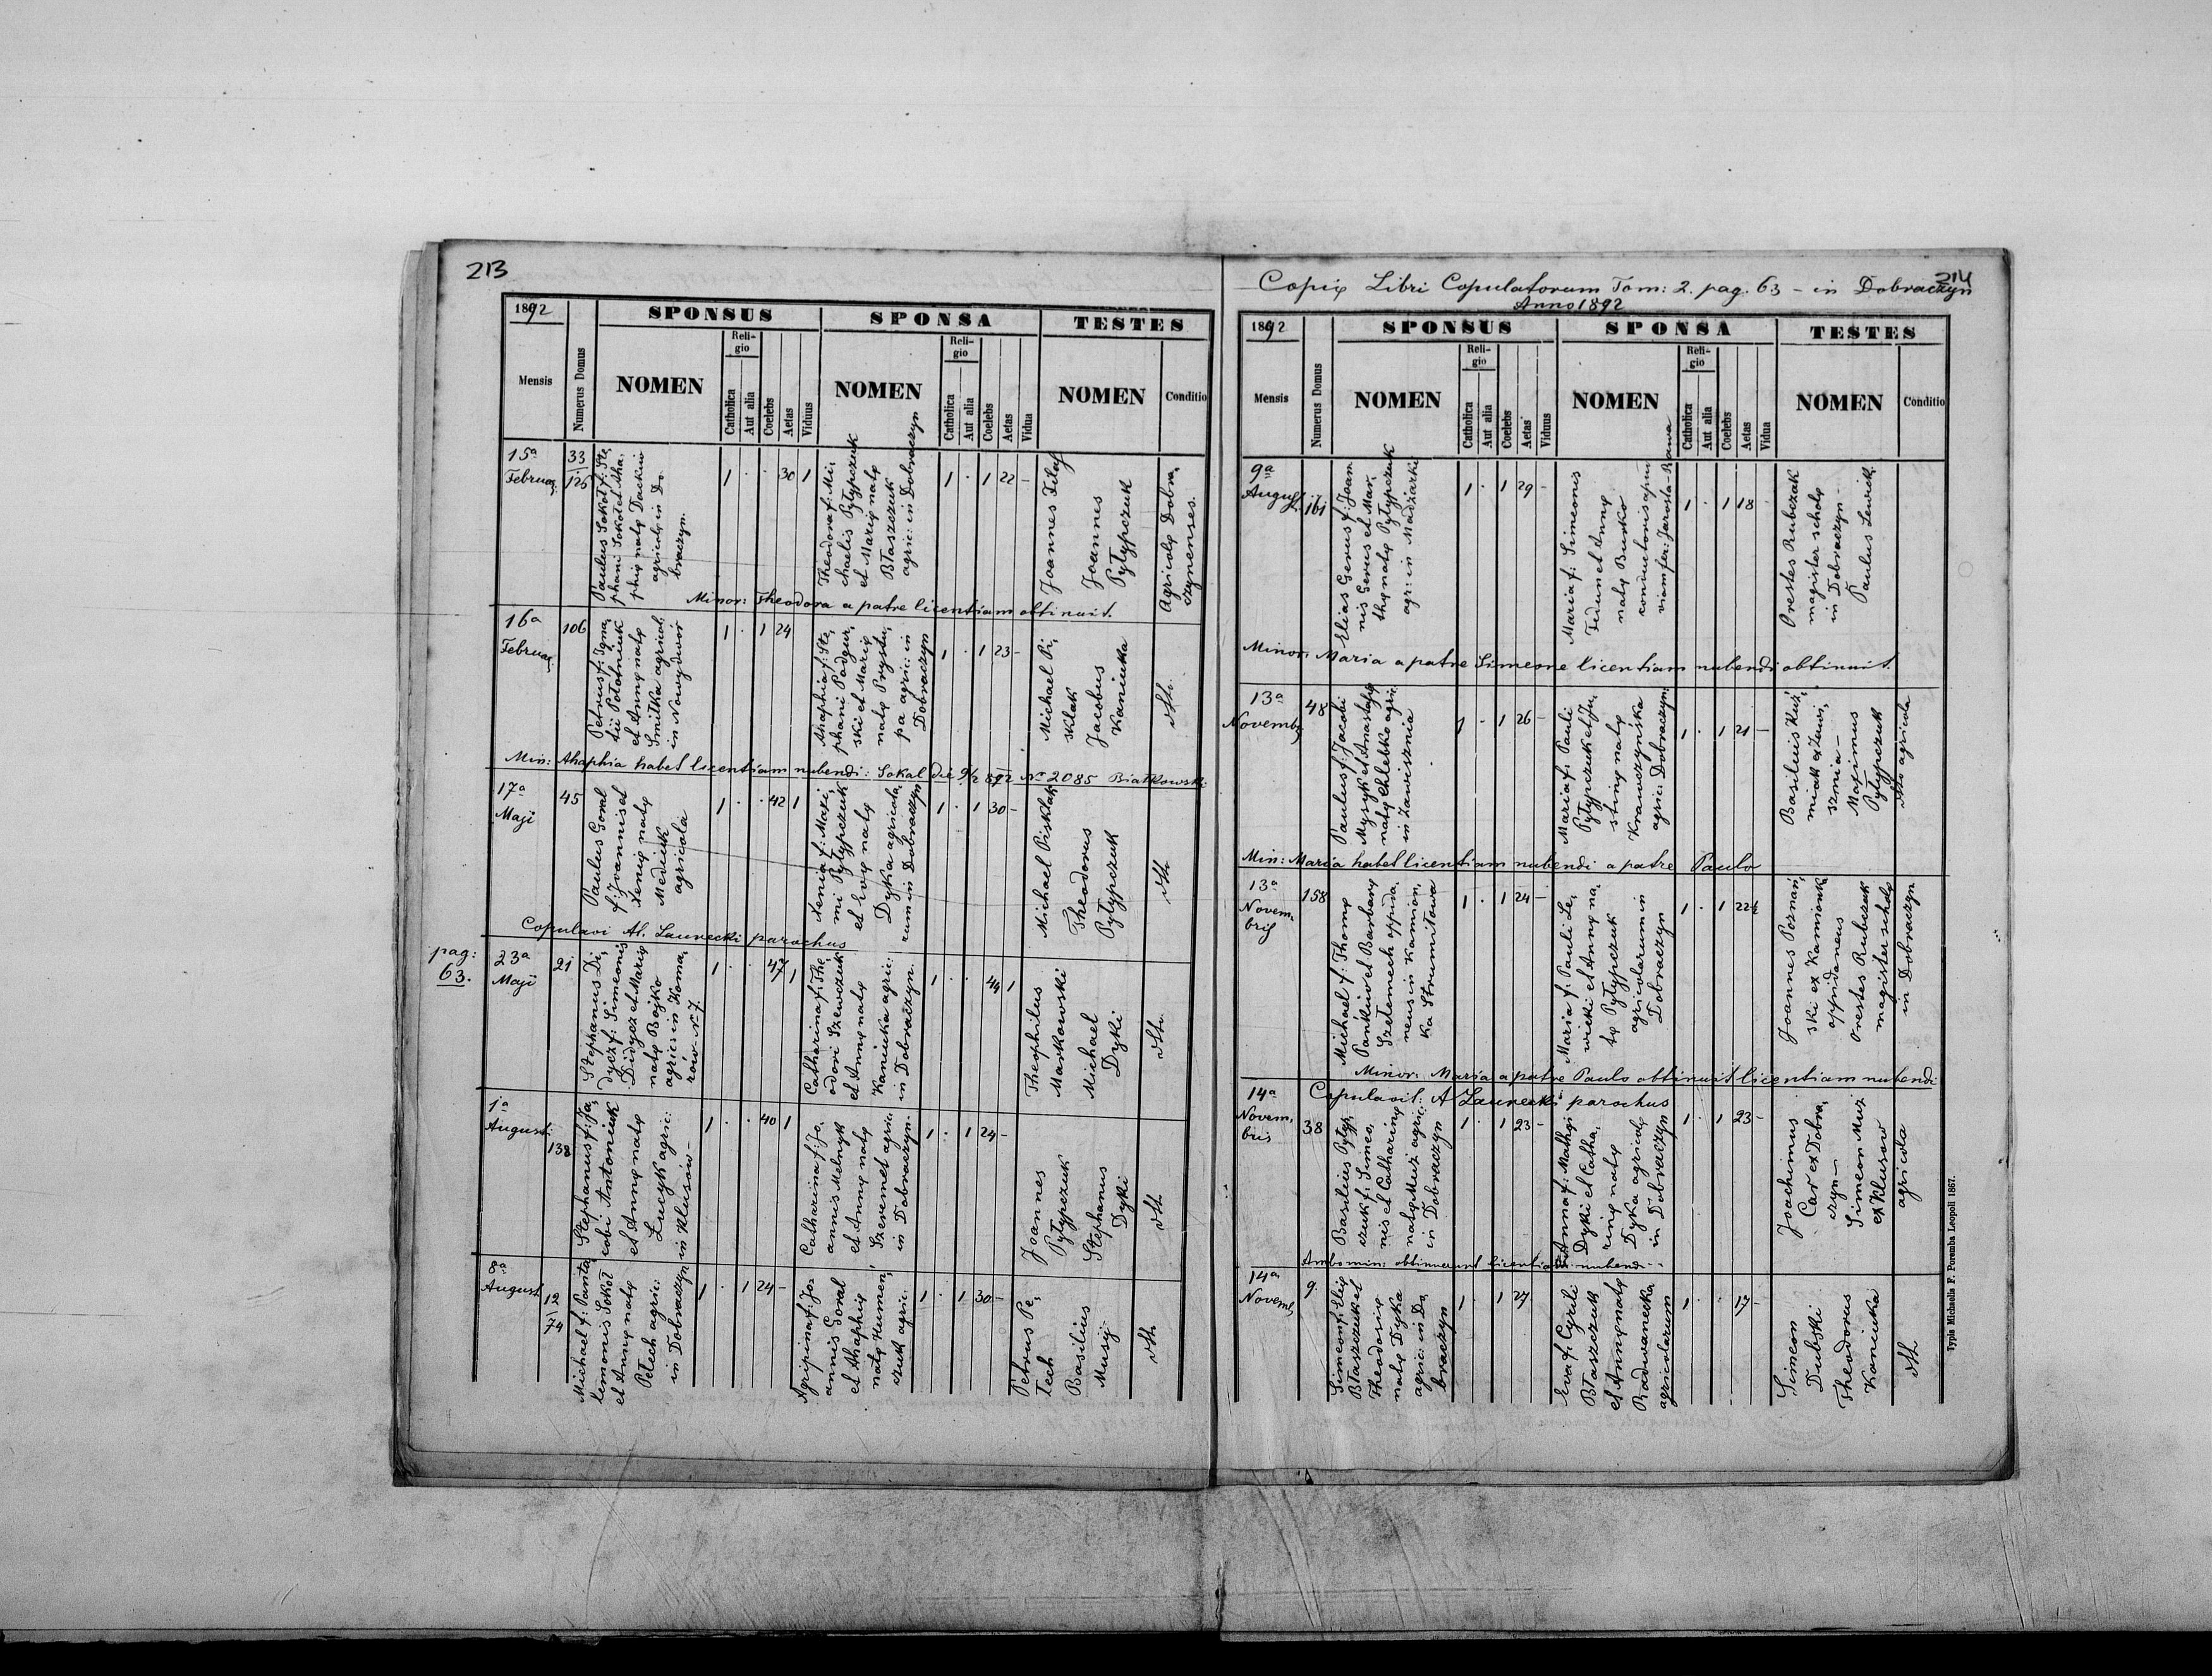 213
1892
SPONSUS
SPONSA
TESTES
Mensis
Numerus Domus
NOMEN
Reli-
gio
Catholica
Aut alia
Coelebs
Aetas
Viduus
NOMEN
Reli-
gio
Catholica
Aut alia
Coelebs
Aetas
Vidua
NOMEN
Conditio
15a
Februar.
33
126
Paulus Sokoł f: Ste,
phani Sokoł et Aha,
phię natę Dackiw
agricolę in Do
braczyn.
1 . . 30 1
Theodora f: Mi,
chaelis Pyłypczuk
et Marię natę
Błaszczuk
agric: in Dobraczyn
1 . 1 22 -
Joannes Filaf
Joannes
Pyłypczuk
Agricolę Dobra,
czynenses.
Minor: Theodora a patre licentiam obtinuit.
16a
Februar.
106
Petrus f: Igna,
tii Połotniuk
et Annę natę
Smitka agricol,
in Nowydwór
1 . 1 24
Ahaphia f: Ste,
phani Padgur,
ski et Marię
natę Prystu,
pa agric: in
Dobraczyn
1 . 1 23 -
Michael Pi,
sklak
Jacobus
Kaniuka
dtto.
Min: Ahaphia habet licentiam nubendi: Sokal die 9/2 892 No 2085 Białkowski
17a
Maji
45
Paulus Goral
f: Joannis et
Xenię natę
Mediuk
agricola
1 . . 42 1
Xenia f: Maxi,
mi Pyłypczuk
et Evę natę
Dyka agricola,
rum in Dobraczyn
1 . 1 30 -
Michael Pisklak
Theodorus
Pyłypczuk
dtt.
Copulavi Al. Laurecki parochus
pag:
63.
23a
Maji
21
Stephanus Di,
dycz f: Simeonis
Didycz et Marię
natę Bojko
agric: in Koma,
rów N. 7.
1 . . 47 1
Catharina f: The,
odori Szewczuk
et Annę natę
Kaniuka agric:
in Dobraczyn.
1 . . 44 1
Theophilus
Markowski
Michael
Dyki
dtt.
1a
August:
138
Stephanus f: Ja,
cobi Antoniuk
et Annę natę
Łucyk agric:
in Klusów -
1 . . 40 1
Catharina f: Jo,
annis Melnyk
et Annę natę
Szeremet agric:
in Dobraczyn.
1 . 1 24 -
Joannes
Pyłypczuk
Stephanus
Dyki
dtt.
8a
August
12
74
Michael f: Panta,
lemonis Sokoł
et Annę natę
Pełech agric:
in Dobraczyn
1 . 1 24 -
Agripina f: Jo,
annis Goral
et Ahaphię
natę Humen,
czuk agric.
1 . 1 30 -
Petrus Pe,
łech
Basilius
Musij
dtt.
214
Copię Libri Copulatorum Tom: 2. pag. 63 - in Dobraczyn
Anno 1892
1892
SPONSUS
SPONSA
TESTES
Mensis
Numerus Domus
NOMEN
Reli-
gio
Catholica
Aut alia
Coelebs
Aetas
Viduus
NOMEN
Reli-
gio
Catholica
Aut alia
Coelebs
Aetas
Vidua
NOMEN
Conditio
9a
August.
161
Elias Gerus f: Joan
nis Gerus et Mar,
thę natę Pyłypczuk
agr: in Madziarki
1 . 1 29 -
Maria f: Simeonis
Fediun et Annę
natę Bunko
convictoris apud
viam fer: Jarosła-Rawa
1 . 1 18 -
Orestes Rubczak
magister scholę
in Dobraczyn -
Paulus Lewicki
Minor: Maria a patre Simeone licentiam nubendi obtinuit.
13a
Novembr
48
Paulus f: Jacobi
Mysyk et Anastasię
natę Chlebko agri:
in Zawisznia
1 . 1 26 -
Maria f: Pauli
Pyłypczuk et Ju,
stinę natę
Krawczyńska
agric: Dobraczyn.
1 . 1 21 -
Basilius Kuź,
miak ex Zawi,
sznia -
Maximus
Pyłypczuk
dtto agricola
Min: Maria habet licentiam nubendi a patre Paulo
13a
Novem,
bris
158
Michael f: Thomę
Pankiw et Barbarę
Szełemech oppida,
neus in Kamion,
ka Strumiłowa
1 . 1 24 -
Maria f: Pauli Le,
wicki et Annę na,
tę Pyłypczuk
agricolarum in
Dobraczyn
1 . 1 22½
Joannes Poznań,
ski ex Kamionka
oppidaneus
Orestes Rubczak
magister scholę
in Dobraczyn
Minor: Maria a patre Paulo obtinuit licentiam nubendi
Copulavit: A Laurecki parochus
14a
Novem,
bris
38
Basilius Pyłyp,
czuk f: Simeo,
nis et Catharinę
natę Muż agric:
in Dobraczyn
1 . 1 23 -
Anna f: Mathęi
Dyki et Catha,
rinę natę
Dyka agricolę
in Dobraczyn
1 . 1 23 -
Joachimus
Car ex Dobra,
czyn -
Simeon Muż
ex Klusow
agricola
Ambo min: obtinuerunt licentiam nubendi.
14a
Novemb
9.
Simeon f: Elię
Błaszczuk et
Theodorię
natę Dyka
agric: in Do,
braczyn
1 . 1 27
Eva f: Cyrili
Błaszczuk
et Annę natę
Radwanecka
agricolarum
1 . . 17 -
Simeon
Dubski
Theodorus
Kaniuka
dtt
Typis Michaelis F. Poremba Leopoli 1867.